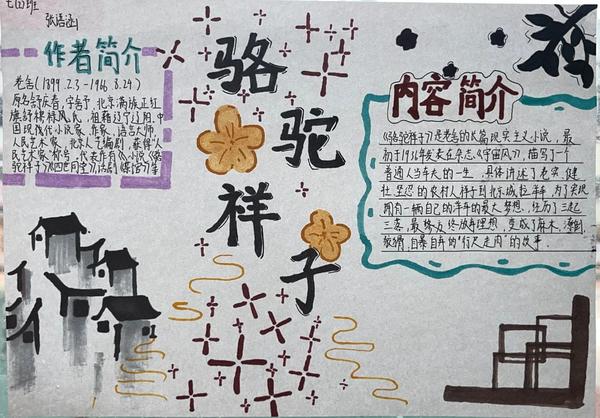 七四班
张语涵
作者简介
老舍(1899.2.3-1966.8.24)
原名舒庆春,字舍予,北京满族正红
旗舒穆禄氏,祖籍辽宁辽阳,中
国现代小说家、作家、语言大师、
人民艺术家、北京人艺编剧,获得"人
民艺术家"称号,代表作有《小说《骆
驼祥子》《四世同堂》,话剧《茶馆》等
骆
驼
祥
子
内容简介
《骆驼祥子》是老舍的长篇现实主义小说,最
初于1936年发表在杂志《宇宙风》,描写了一个
普通人力车夫的一生,具体讲述了老实、健
壮、坚忍的农村人祥子到北京城拉车,为了实现
拥有一辆自己的车的最大梦想,经历了三起
三落,最终放弃理想,变成了麻木、潦倒、
狡猾、自暴自弃的"行尸走肉"的故事.